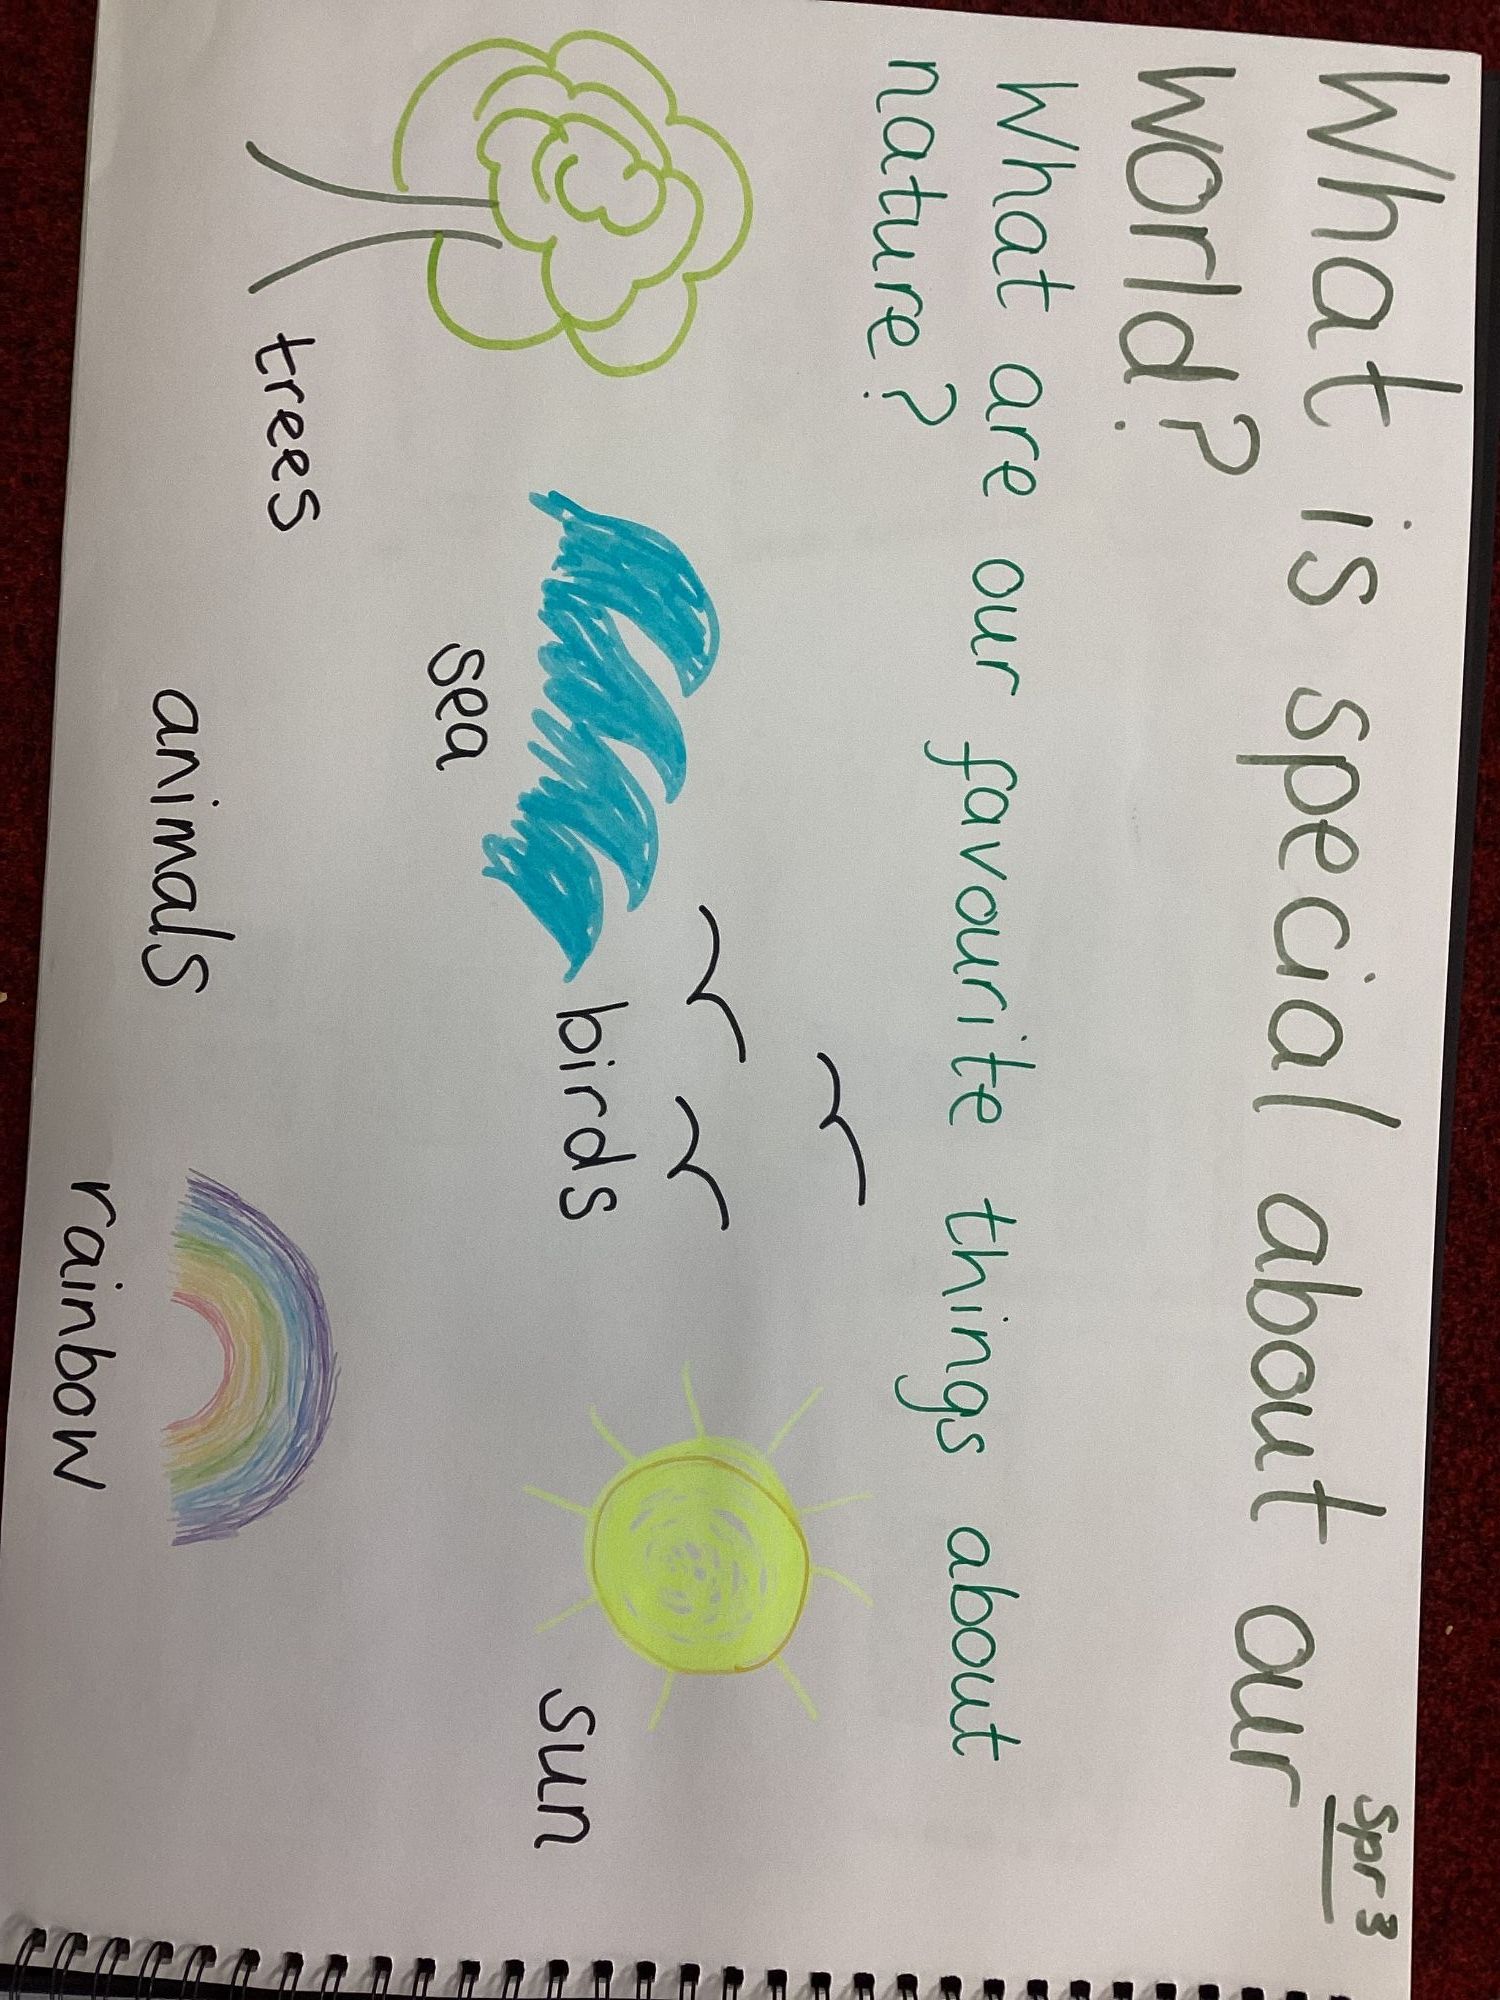 Spr 3
What is special about our
world?
What are our favourite things about
nature?
birds
sea
sun
trees
animals
rainbow